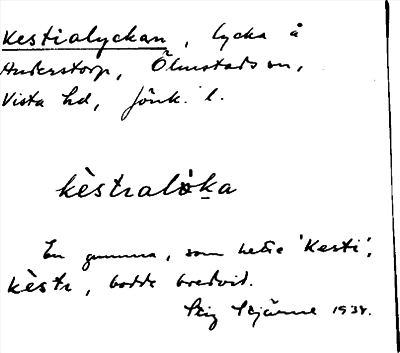 Kestialyckan, lycka å
Anderstorp, Ölmstads sn,
Vista hd, Jönk. l.
kèstralöka
En gumma, som hette 'Kesti',
kèstr, bodde bredvid.
Stig Stjärne 1938.